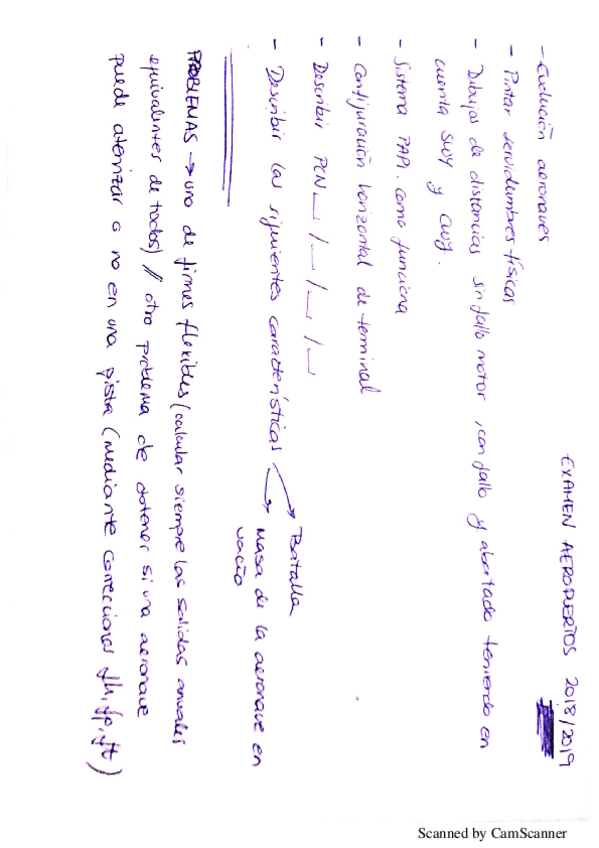 EXAMEN AEROPUERTOS 2018/2019
- Evolución aeronaves
- Pintar servidumbres físicas
- Dibujos de distancias sin fallo motor, con fallo y abortado teniendo en
cuenta SWY y CWY.
- Sistema PAPI. como funciona
- Configuración horizontal de terminal
- Describir PCN __/__/__/__
- Describir las siguientes características → Batalla
→ Masa de la aeronave en
vacío
PROBLEMAS → uno de firmes flexibles (calcular siempre las salidas anuales
equivalentes de todos) // otro problema de obtener si una aeronave
puede aterrizar o no en una pista (mediante correcciones fh, fp, ft)
Scanned by CamScanner